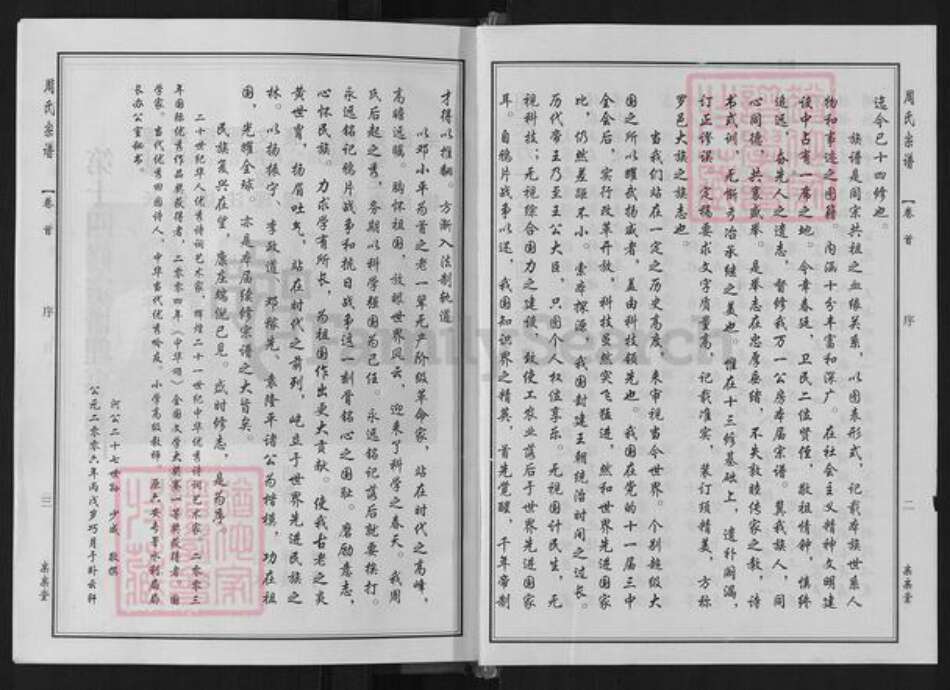 周氏宗谱
【卷首
序
二
亲亲堂
迄今已十四修也。
族谱是同宗共祖之血缘关系,以图表形式,记载本族世系人
物和事迹之图籍。内涵十分丰富和深广。在社会主义精神文明建
设中占有一席之地。今幸春廷、卫民二位贤侄,敬祖情钟,慎终
追远,奋先人之遗志,督修我万一公房本届宗谱。冀我族人,同
心同德,共襄盛举。是举志在忠厚垂绪,不失敦睦传家之教,诗
书式训,无惭弓冶承继之美也。惟在十三修基础上,遗补阙漏,
订正修误,定稿要求文字质量高,记载准实,装订须精美,方称
罗邑大族之族志也。
当我们站在一定之历史高度,来审视当今世界。个别超级大
国之所以耀我扬威者,盖由科技领先也。我国在党的十一届三中
全会后,实行改革开放,科技虽然突飞猛进,然和世界先进国家
比,仍然差距不小。索本探源,我国封建王朝统治时间之过长。
历代帝王乃至王公大臣,只图个人权位享乐。无视国计民生,无
视科技;无视综合国力之建设,致使工农业落后于世界先进国家
耳。自鸦片战争以还,我国知识界之精英,首先觉醒,千年帝制
才得以推翻。方渐入法制轨道
以邓小平为首之老一辈无产阶级革命家,站在时代之高峰,
高瞻远瞩,胸怀祖国,放眼世界风云,迎来了科学之春天。我周
氏后起之秀,务期以科学强国为己任。永远铭记落后就要挨打。
永远铭记鸦片战争和抗日战争这一刻骨铭心之国耻。磨励意志,
心怀民族。力求学有所长,为祖国作出更大贡献。使我古老之炎
黄世胄,扬眉吐气,站在时代之前列,屹立于世界先进民族之
林。以杨振宁、李政道、邓稼先、袁隆平诸公为楷模,功在祖
国,光耀全球,亦是本届续修宗谱之大旨矣。
民族复兴在望,康庄端倪已见。盛时修志,是为序。
二十世纪华人优秀诗词艺术家、辉煌二十一世纪中华优秀诗词艺术家、二零零三
年国际优秀作品奖获得者,二零零四年《中华颂》全国文学大奖赛一等奖获得者、国
学家、当代优秀田园诗人、中华当代优秀吟友、小学高级教师、原六安专署水利局局
长办公室秘书。
河公二十七世孙 少成 敬撰
公元二零零六年丙戌岁巧月于卧云轩
周氏宗谱
【卷首
序
三
亲亲堂
FamilySearch